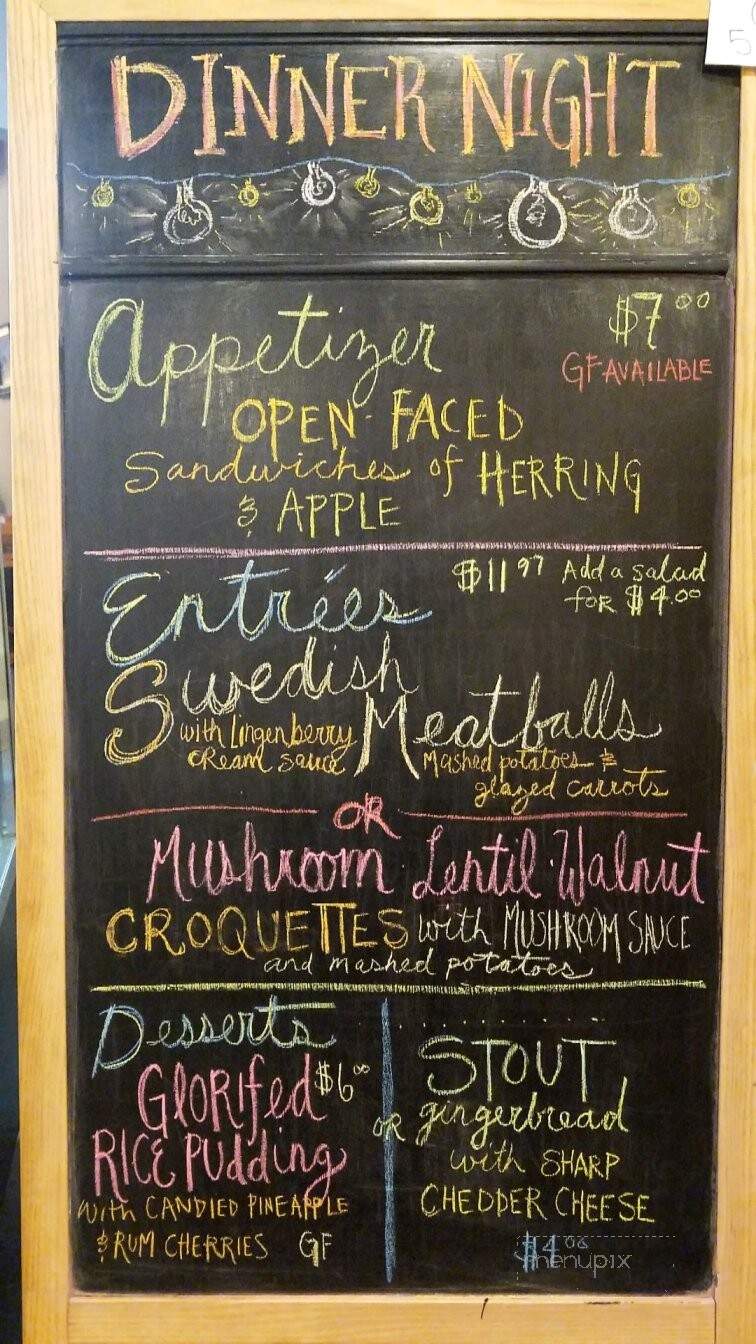 5
DINNER NIGHT
Appetizer $7.00
GF AVAILABLE
OPEN-FACED
Sandwiches of HERRING
& APPLE
Entrées $11.97 Add a salad
for $4.00
Swedish
Meatballs
with Lingenberry
cream sauce
Mashed potatoes &
glazed carrots
OR
Mushroom Lentil·Walnut
CROQUETTES with MUSHROOM SAUCE
and mashed potatoes
Desserts
Glorifed $6.00
RICE Pudding
with CANDIED PINEAPPLE
& RUM CHERRIES GF
OR
STOUT
gingerbread
with SHARP
CHEDDER CHEESE
menupix